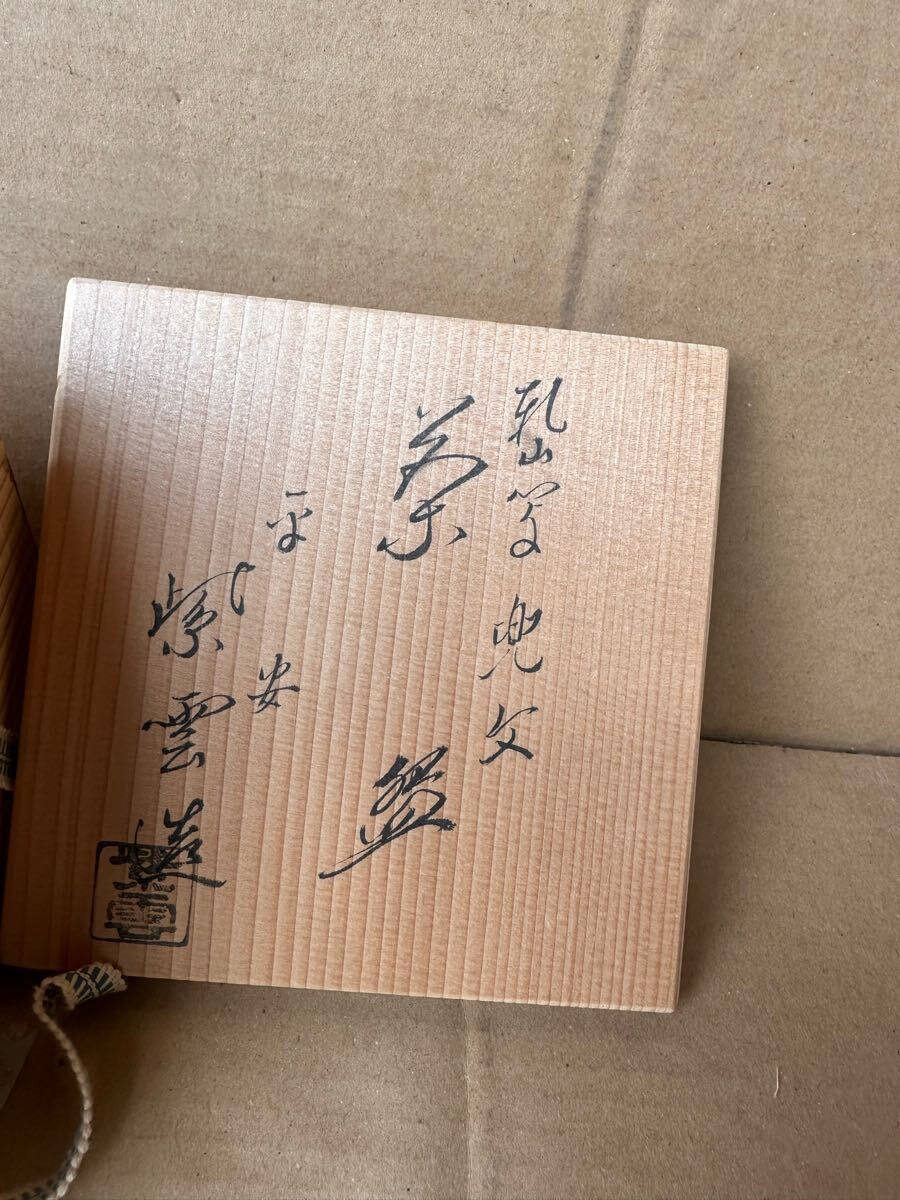 乾山写 兜文
茶 盌
平安
紫雲造